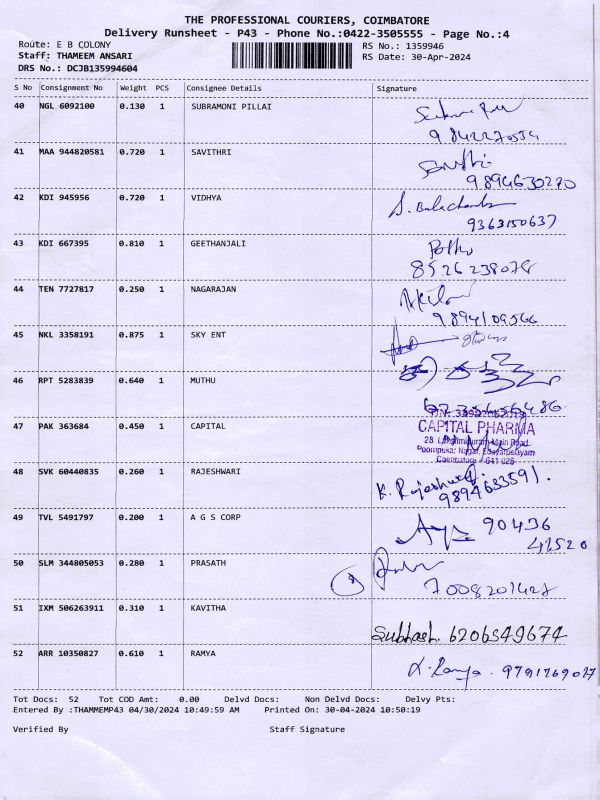 THE PROFESSIONAL COURIERS, COIMBATORE
Delivery Runsheet - P43 - Phone No.:0422-3505555 - Page No.:4
Route: E B COLONY RS No.: 1359946
Staff: THAMEEM ANSARI RS Date: 30-Apr-2024
DRS No.: DCJB135994604
S No Consignment No Weight PCS Consignee Details Signature
40 NGL 6092100 0.130 1 SUBRAMONI PILLAI
41 MAA 944820581 0.720 1 SAVITHRI
9894630270
42 KDI 945956 0.720 1 VIDHYA S. Balachandra
9363150637
43 KDI 667395 0.810 1 GEETHANJALI
8526238078
44 TEN 7727817 0.250 1 NAGARAJAN
9894109566
45 NKL 3358191 0.875 1 SKY ENT
46 RPT 5283839 0.640 1 MUTHU
47 PAK 363684 0.450 1 CAPITAL CAPITAL PHARMA
Coimbatore - 641 025
48 SVK 60440835 0.260 1 RAJESHWARI K. Rajeshwari
9894633591.
49 TVL 5491797 0.200 1 A G S CORP 90436
42520
50 SLM 344805053 0.280 1 PRASATH
7008201427
51 IXM 506263911 0.310 1 KAVITHA
Subhash. 6206549674
52 ARR 10350827 0.610 1 RAMYA
Ramya. 9791769027
Tot Docs: 52 Tot COD Amt: 0.00 Delvd Docs: Non Delvd Docs: Delvy Pts:
Entered By :THAMMEMP43 04/30/2024 10:49:59 AM Printed On: 30-04-2024 10:50:19
Verified By Staff Signature